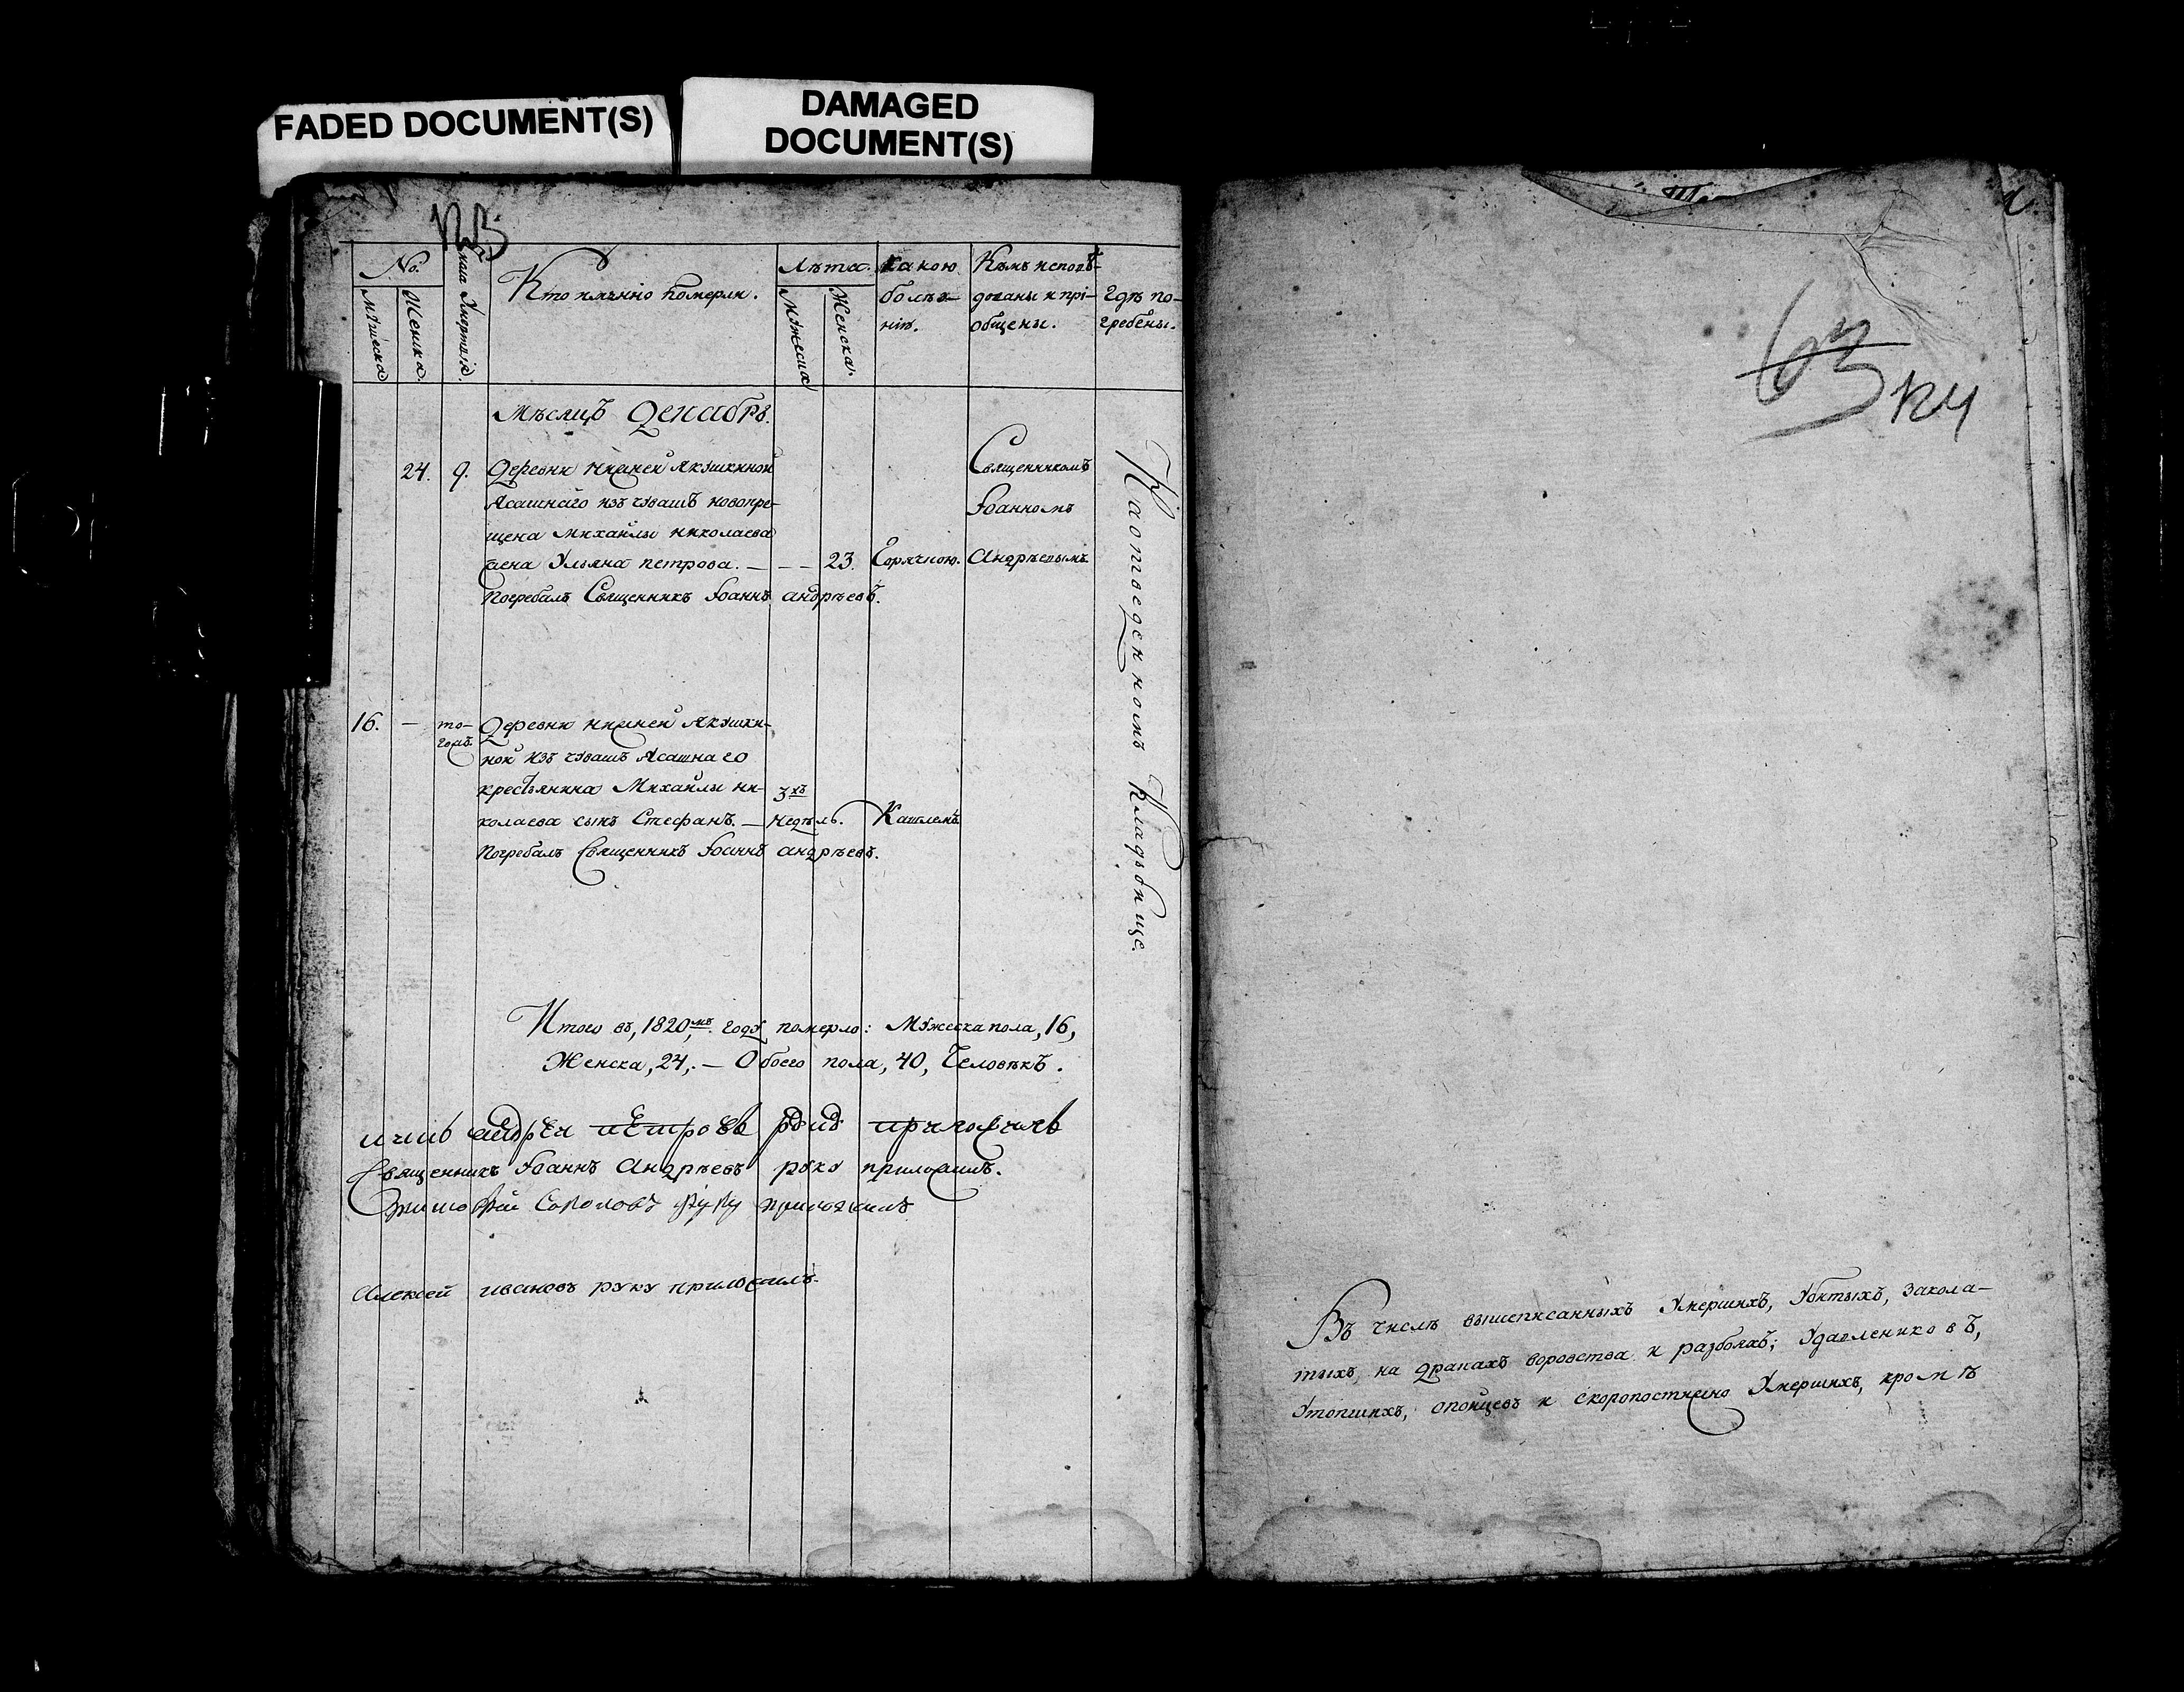 FADED DOCUMENT(S)
DAMAGED
DOCUMENT(S)
№:
Мужеска
Женска.
Умертвія.
Кто имянно померли.
Лѣта.
Мужеска
Женска.
Какою
болѣз-
нію.
Кѣмъ исповѣ-
дованы и прі-
общены.
Гдѣ по-
гребены.
Мѣсяцъ Декабрь.
24. 9. Деревни нижней Якушкиной
Ясашнаго изъ чувашъ новокре-
щена Михайлы николаева
жена Ульяна петрова. — — — 23. Горячкою.
Погребалъ Священникъ Іоаннъ андрѣевъ.
Священникомъ
Іоанномъ
Андрѣевымъ
16. — то-
гожъ. Деревни нижней Якушки-
ной изъ чувашъ Ясашнаго
крестьянина Михайлы ни-
колаева сынъ Стефанъ. — 3хъ
недѣль. Кашлемъ.
Погребалъ Священникъ Іоаннъ андрѣевъ.
На отведенномъ Кладьбище.
Итого въ, 1820,мъ. году померло: Мужеска пола, 16,
Женска, 24,. — Обоего пола, 40, Человѣкъ.
Священникъ Іоаннъ Андрѣевъ руку приложилъ.
Соколовъ руку приложилъ
Алексей ивановъ руку приложилъ.
63
124
Въ числѣ вышеписанныхъ Умершихъ, Убитыхъ, закола-
тыхъ, на дракахъ воровства и разбояхъ; Удавленниковъ,
Утопшихъ, опойцевъ и скоропостижно Умершихъ, кромѣ